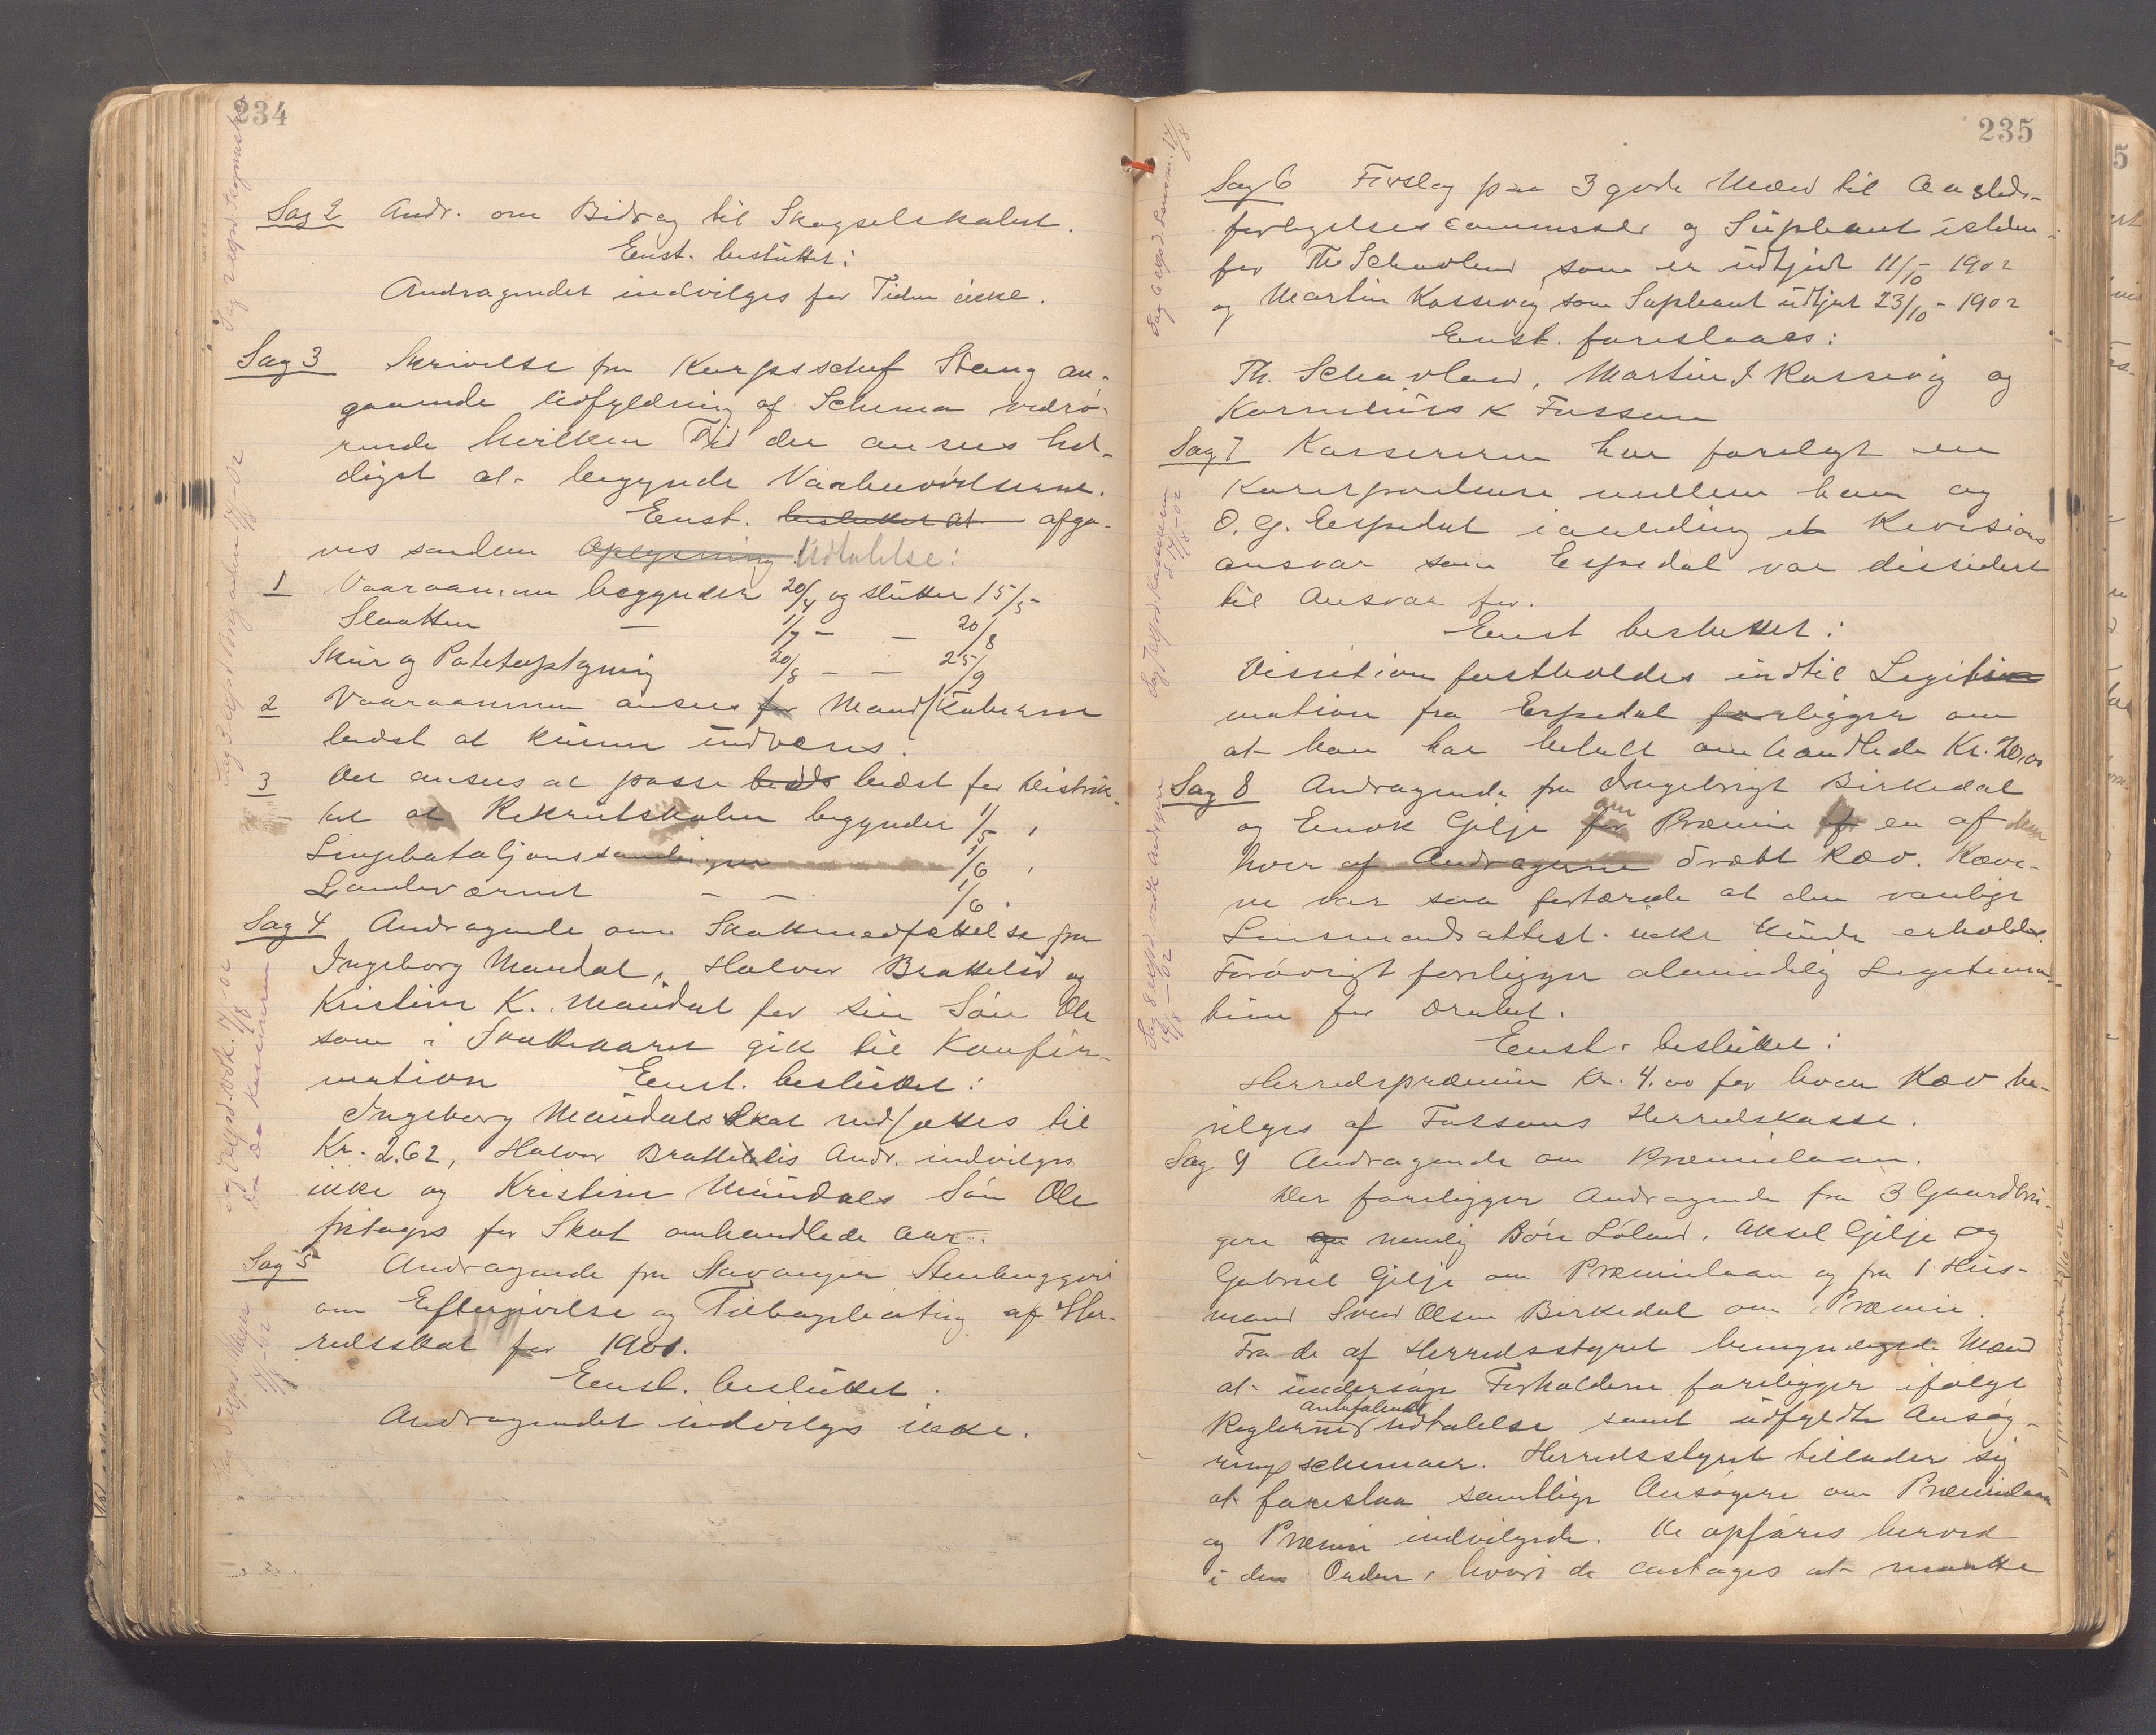 234
Sag 2 Andr. om Bidrag til Skogselskabet.
Enst. besluttet:
Andragendet indvilges for Tiden ikke.
Sag 3 Skrivelse fra Korpsschef Stang an-
gaaende Udfyldning af Schema vedrø-
rende hvilken Tid der ansees hel-
digst at begynde Vaabenøvelserne.
Enst. besluttet at afga-
ves saadan Oplysning Udtalelse:
1 Vaaraannen begynder 20/4 og slutter 15/5
Slaatten — 1/7 — — 20/8
Skur og Potetoptagning 20/8 — — 25/9
2 Vaaraannen ansees for Mandskaberne
bedst at kunne undværes.
3 Det ansees at passe beds bedst for Distrik-
tet at Rekrutskolen begynder 1/5,
Linjebataljonssamlinger 1/6,
Landværnet — — 1/6.
Sag 4 Andragende om Skatnedsættelse fra
Ingeborg Maudal, Halvor Brattelid og
Kristine K. Maudal for sin Søn Ole
som i Skatteaaret gik til Konfir-
mation Enst. besluttet:
Ingeborg Maudals Skat nedsættes til
Kr. 2.62, Halvor Brattelis Andr. indvilges
ikke og Kristine Maudals Søn Ole
fritages for Skat omhandlede Aar.
Sag 5 Andragende fra Stavanger Stenhuggeri
om Eftergivelse og Tilbagebetaling af Her-
redsskat for 1901.
Enst. besluttet.
Andragendet indvilges ikke.
235
Sag 6 Forslag paa 3 gode Mænd til Aasteds-
forligelsescommissær og Supleant istden-
for Th. Schavland som er udtjent 11/10 - 1902
og Martin Kassevig som Supleant udtjent 23/10 - 1902
Enst. foreslaaes:
Th. Schavland, Martin J Kassevig og
Kornelius K Fossan
Sag 7 Kassereren har forelagt en
Korespondense mellem ham og
O. G. Espedal ianleding et Revisions
ansvar som Espedal var dissidert
til Ansvar for.
Enst besluttet:
Dissition fastholdes indtil Legiti
mation fra Espedal foreligger om
at han har betalt omhandlede Kr. 20,00
Sag 8 Andragende fra Ingebrigt Birkedal
og Enok Gilje for om Præmie for en af dem
hver af Andragerne dræbt Ræv. Ræve-
ne var saa fortærede at den vanlige
Lensmandsattest ikke kunde erholdes.
Forøvrigt foreligger almindelig Legitima-
tion for Drabet.
Enst. besluttet:
Herredspræmie Kr. 4.00 for hver Ræv be-
vilges af Fossans Herredskasse.
Sag 9 Andragende om Præmielaan.
Der foreligger Andragende fra 3 Gaardbru-
gere og nemlig Bør Løland, Aksel Gilje og
Gabriel Gilje om Præmielaan og fra 1 Hus-
mand Sven Olsen Birkedal om Præmie.
Fra de af Herredsstyret bemyndigede Mænd
at undersøge Forholdene foreligger ifølge
Reglerne anbefalende Udtalelse samt udfyldte Ansøg-
ningsschemaer. Herredsstyret tillader sig
at foreslaa samtlige Ansøgere om Præmielaan
og Præmie indvilgede. De opføres herved
i den Orden, hvori de antages at maatte